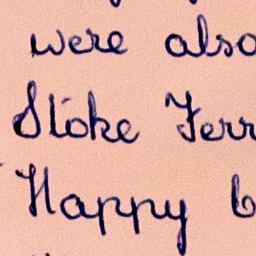 were also
Stoke Ferr
Happy b